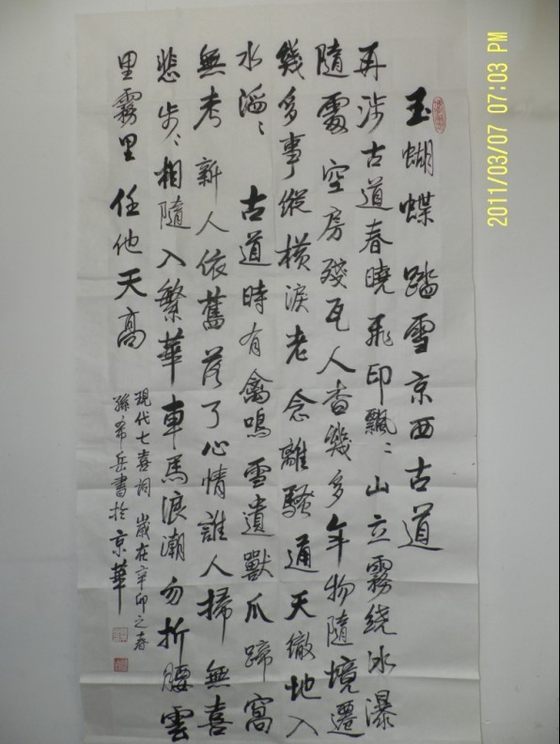 玉蝴蝶 踏雪京西古道
再涉古道春曉飛印飄〻山立霧繞冰瀑
隨處空房殘瓦人杳幾多年物隨境遷
幾多事縱橫淚老念離騷通天徹地入
水滔〻 古道時有禽鳴雪遺獸爪蹄窩
無考新人依舊落了心情誰人掃 無喜
悲步〻相隨入繁華車馬浪潮勿折腰雲
里霧里任他天高
現代七喜詞 歲在辛卯之春
孫希岳書於京華
2011/03/07 07:03 PM